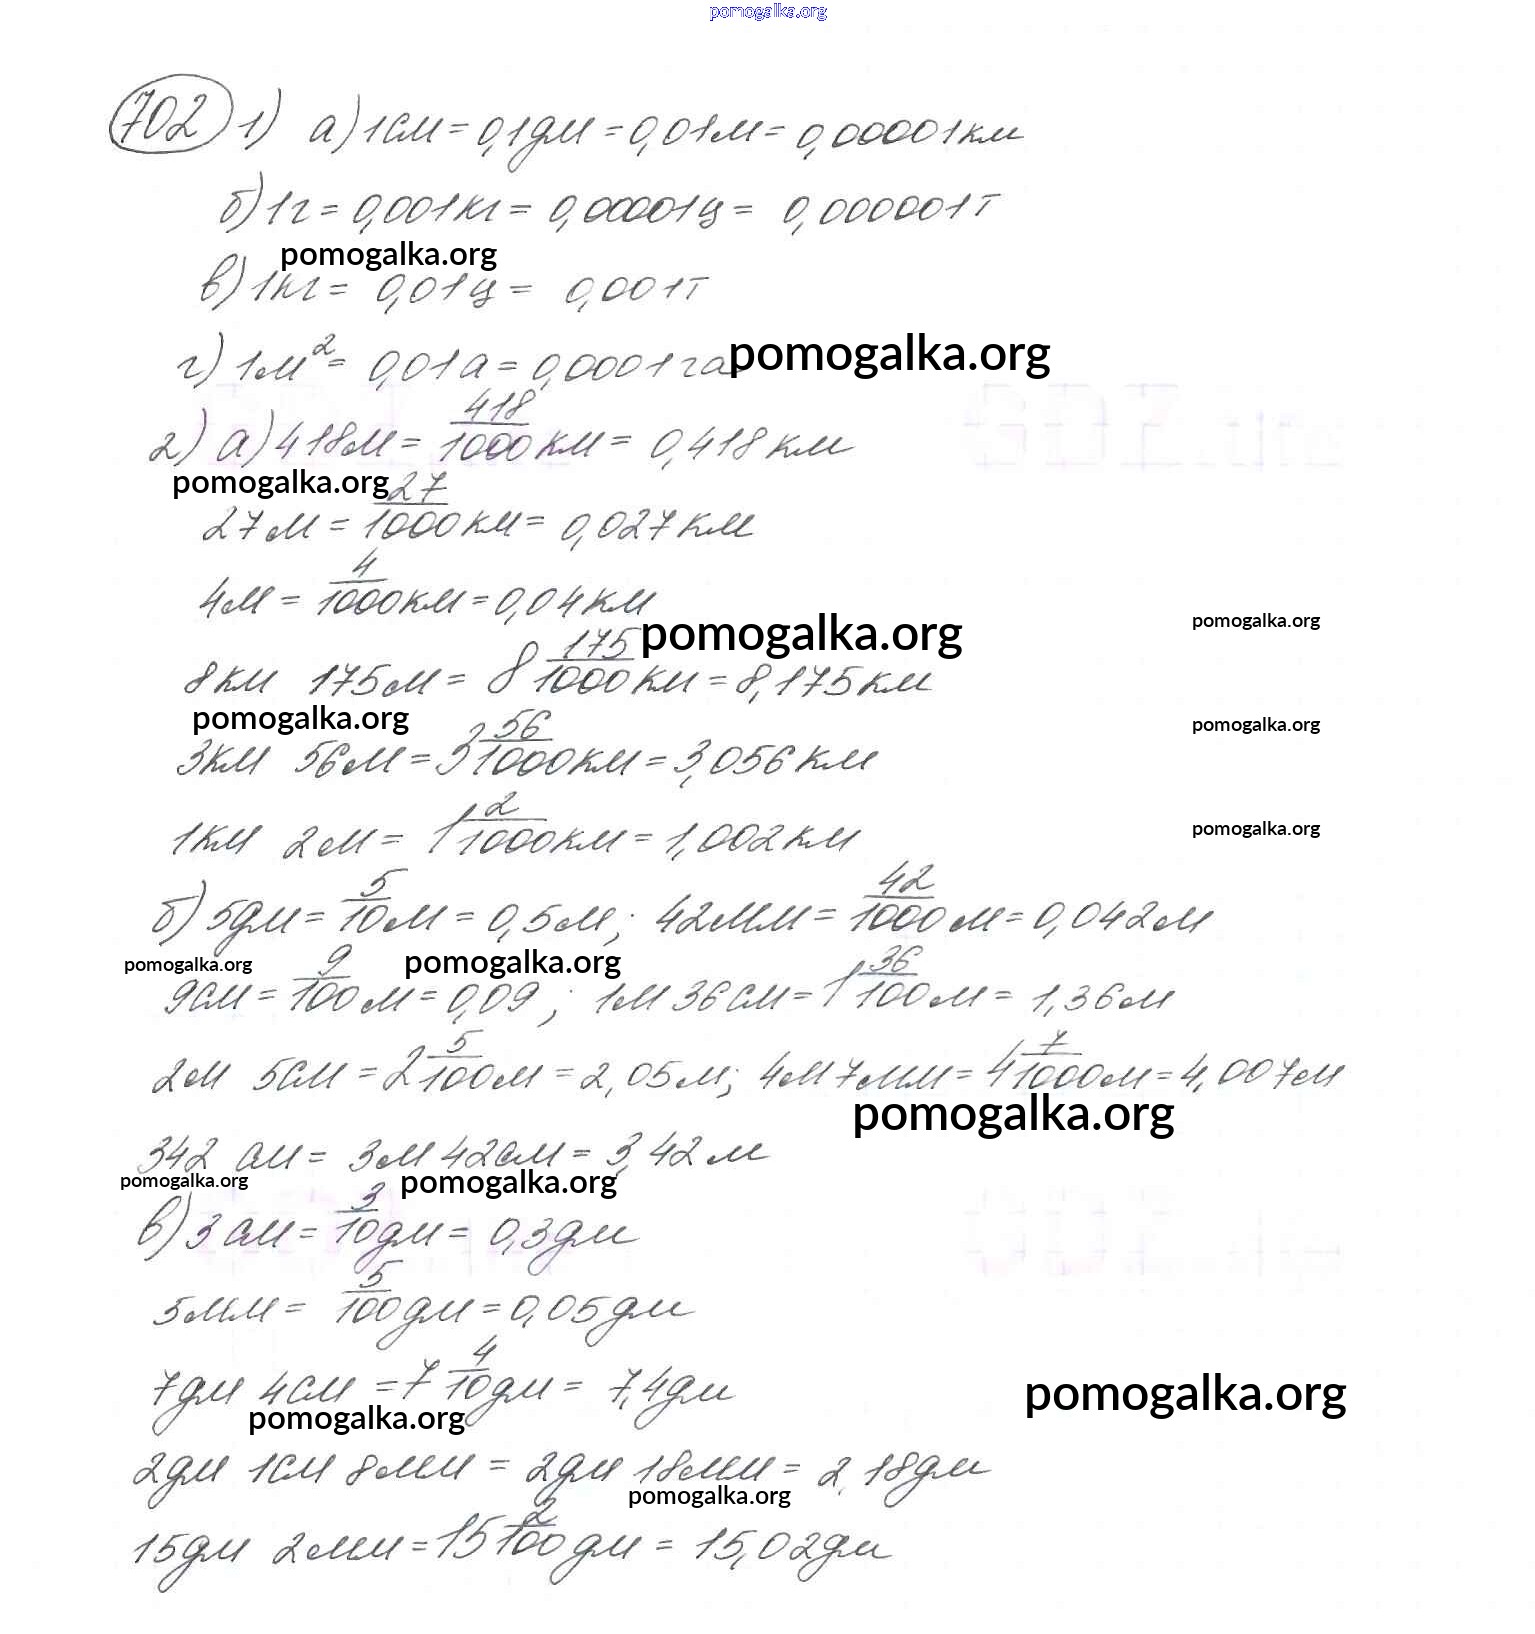 pomogalka.org
702 1) а) 1см = 0,1дм = 0,01м = 0,00001км
б) 1г = 0,001кг = 0,00001ц = 0,000001т
pomogalka.org
в) 1кг = 0,01ц = 0,001т
г) 1м² = 0,01а = 0,0001га pomogalka.org
2) а) 418м = 418/1000 км = 0,418км
pomogalka.org
27м = 27/1000 км = 0,027км
4м = 4/1000 км = 0,04км
pomogalka.org pomogalka.org
8км 175м = 8 175/1000 км = 8,175км
pomogalka.org pomogalka.org
3км 56м = 3 56/1000 км = 3,056км
pomogalka.org
1км 2м = 1 2/1000 км = 1,002км
б) 5дм = 5/10 м = 0,5м; 42мм = 42/1000 м = 0,042м
pomogalka.org pomogalka.org
9см = 9/100 м = 0,09; 1м 36см = 1 36/100 м = 1,36м
2м 5см = 2 5/100 м = 2,05м; 4м 7мм = 4 7/1000 м = 4,007м
pomogalka.org
342 см = 3м 42см = 3,42м
pomogalka.org pomogalka.org
в) 3см = 3/10 дм = 0,3дм
5мм = 5/100 дм = 0,05дм
7дм 4см = 7 4/10 дм = 7,4дм
pomogalka.org pomogalka.org
2дм 1см 8мм = 2дм 18мм = 2,18дм
pomogalka.org
15дм 2мм = 15 2/100 дм = 15,02дм